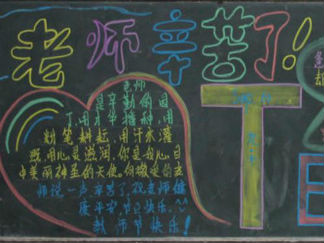 老师辛苦了!
老师
是辛勤的园
丁,用才华播种,用
粉笔耕耘,用汗水灌
溉,用心灵滋润,你是我心目
中美丽神圣的天使。向敬爱的老
师说一声辛苦了,祝老师健
康平安,节日快乐。^^
教师节快乐!
T
E